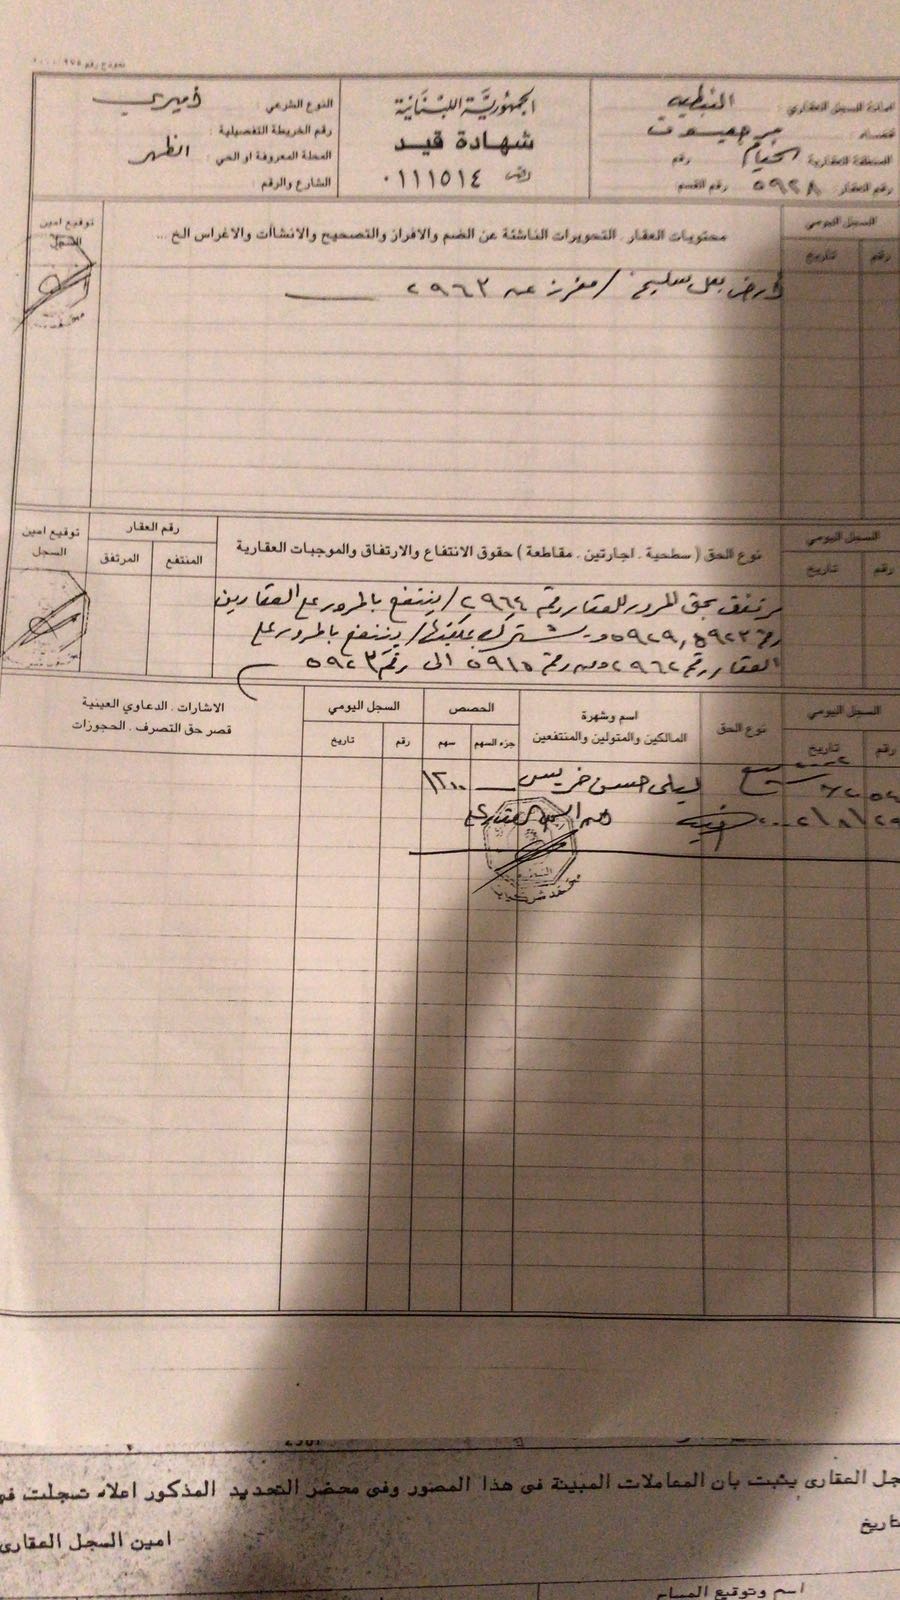 امانة السجل العقاري: النبطية
قضاء: مرجعيون
المنطقة العقارية الخيام رقم
رقم العقار: ٥٩٢٨ رقم القسم
الجمهوريّة اللبنانيّة
شهادة قيد
رقم ٠١١١٥١٤
النوع الشرعي: أميري
رقم الخريطة التفصيلية:
المحلة المعروفة او الحي: الظهر
الشارع والرقم:
السجل اليومي
رقم
تاريخ
محتويات العقار . التحويرات الناشئة عن الضم والافراز والتصحيح والانشاآت والاغراس الخ ...
توقيع امين
السجل
ارض بعل سليخ / مفرز عن ٢٩٦٣
السجل اليومي
رقم
تاريخ
نوع الحق ( سطحية . اجارتين . مقاطعة ) حقوق الانتفاع والارتفاق والموجبات العقارية
رقم العقار
المنتفع
المرتفق
توقيع امين
السجل
مرتفق بحق المرور للعقار رقم ٢٩٦٤ / ينتفع بالمرور على العقارين
رقم ٥٩٢٣ و ٥٩٢٩ ويشترك بملكيتها / ينتفع بالمرور على
العقار رقم ٢٩٦٢ ومن رقم ٥٩١٥ الى رقم ٥٩٢٣
السجل اليومي
رقم
تاريخ
نوع الحق
اسم وشهرة
المالكين والمتولين والمنتفعين
الحصص
جزء السهم
سهم
السجل اليومي
رقم
تاريخ
الاشارات . الدعاوي العينية
قصر حق التصرف . الحجوزات
ليلى حسن خريس ١٢٠٠
جل العقارى يثبت بان المعاملات المبينة فى هذا المصور وفى محضر التحديد المذكور اعلاه تسجلت فى
تاريخ
امين السجل العقارى
اسم وتوقيع المساح